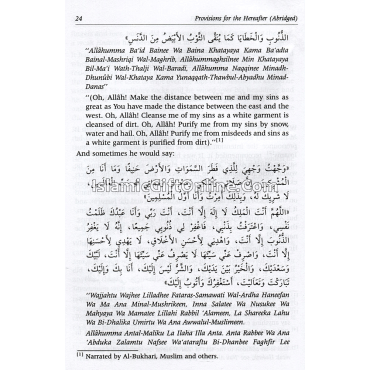 24 Provisions for the Hereafter (Abridged)
الذُّنُوبِ وَالْخَطَايَا كَمَا يُنَقَّى الثَّوْبُ الأَبْيَضُ مِنَ الدَّنَسِ»
"Allâhumma Ba'id Bainee Wa Baina Khatayaya Kama Ba'adta
Bainal-Mashriqi Wal-Maghrib. Allâhummaghsilnee Min Khatayaya
Bil-Ma'i Wath-Thalji Wal-Baradi. Allâhumma Naqqinee Minadh-
Dhunûbi Wal-Khataya Kama Yunaqqath-Thawbul-Abyadhu Minad-
Danas"
"(Oh, Allâh! Make the distance between me and my sins as
great as You have made the distance between the east and the
west. Oh, Allâh! Cleanse me of my sins as a white garment is
cleansed of dirt. Oh, Allâh! Purify me from my sins by snow,
water and hail. Oh, Allâh! Purify me from misdeeds and sins as
a white garment is purified from dirt)."[1]
And sometimes he would say:
«وَجَّهْتُ وَجْهِيَ لِلَّذِي فَطَرَ السَّمَوَاتِ وَالأَرْضَ حَنِيفًا وَمَا أَنَا مِنَ
IslamicGiftOnline.com
لاَ شَرِيكَ لَهُ، وَبِذَلِكَ أُمِرْتُ وَأَنَا أَوَّلُ الْمُسْلِمِينَ»
«اللَّهُمَّ أَنْتَ الْمَلِكُ لاَ إِلَهَ إِلاَّ أَنْتَ، أَنْتَ رَبِّي وَأَنَا عَبْدُكَ ظَلَمْتُ
نَفْسِي، وَاعْتَرَفْتُ بِذَنْبِي، فَاغْفِرْ لِي ذُنُوبِي جَمِيعًا، إِنَّهُ لاَ يَغْفِرُ
الذُّنُوبَ إِلاَّ أَنْتَ، وَاهْدِنِي لأَحْسَنِ الأَخْلاَقِ، لاَ يَهْدِي لأَحْسَنِهَا
إِلاَّ أَنْتَ، وَاصْرِفْ عَنِّي سَيِّئَهَا لاَ يَصْرِفُ عَنِّي سَيِّئَهَا إِلاَّ أَنْتَ، لَبَّيْكَ
وَسَعْدَيْكَ، وَالْخَيْرُ بَيْنَ يَدَيْكَ، وَالشَّرُّ لَيْسَ إِلَيْكَ، أَنَا بِكَ وَإِلَيْكَ،
تَبَارَكْتَ وَتَعَالَيْتَ، أَسْتَغْفِرُكَ وَأَتُوبُ إِلَيْكَ»
"Wajjahtu Wajhee Lilladhee Fataras-Samawati Wal-Ardha Haneefan
Wa Ma Ana Minal-Mushrikeen, Inna Salatee Wa Nusukee Wa
Mahyaya Wa Mamatee Lillahi Rabbil 'Alameen, La Shareeka Lahu
Wa Bi-Dhalika Umirtu Wa Ana Awwalul-Muslimeen.
Allâhumma Antal-Maliku La Ilaha Illa Anta. Anta Rabbee Wa Ana
'Abduka Zalamtu Nafsee Wa'ataraftu Bi-Dhanbee Faghfir Lee
[1] Narrated by Al-Bukhari, Muslim and others.